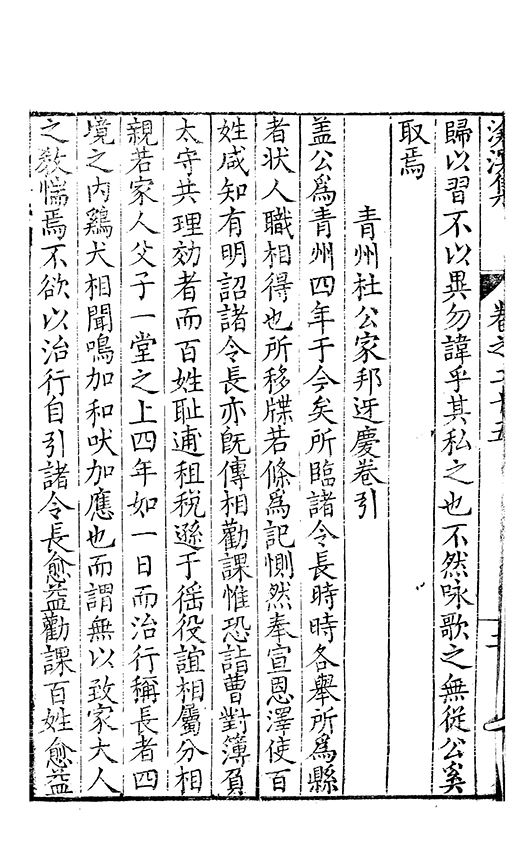 滄溟集 卷之二十五
歸以習不以異勿諱乎其私之也不然咏歌之無從公奚
取焉
青州杜公家邦迓慶卷引
盖公爲青州四年于今矣所臨諸令長時時各舉所爲縣
者状人職相得也所移牒若條爲記惻然奉宣恩澤使百
姓咸知有明詔諸令長亦旣傳相勸課惟恐詣曹對簿負
太守共理効者而百姓耻逋租税遜于徭役誼相屬分相
親若家人父子一堂之上四年如一日而治行稱長者四
境之内鷄犬相聞鳴加和吠加應也而謂無以致家大人
之教惴焉不欲以治行自引諸令長愈益勸課百姓愈益